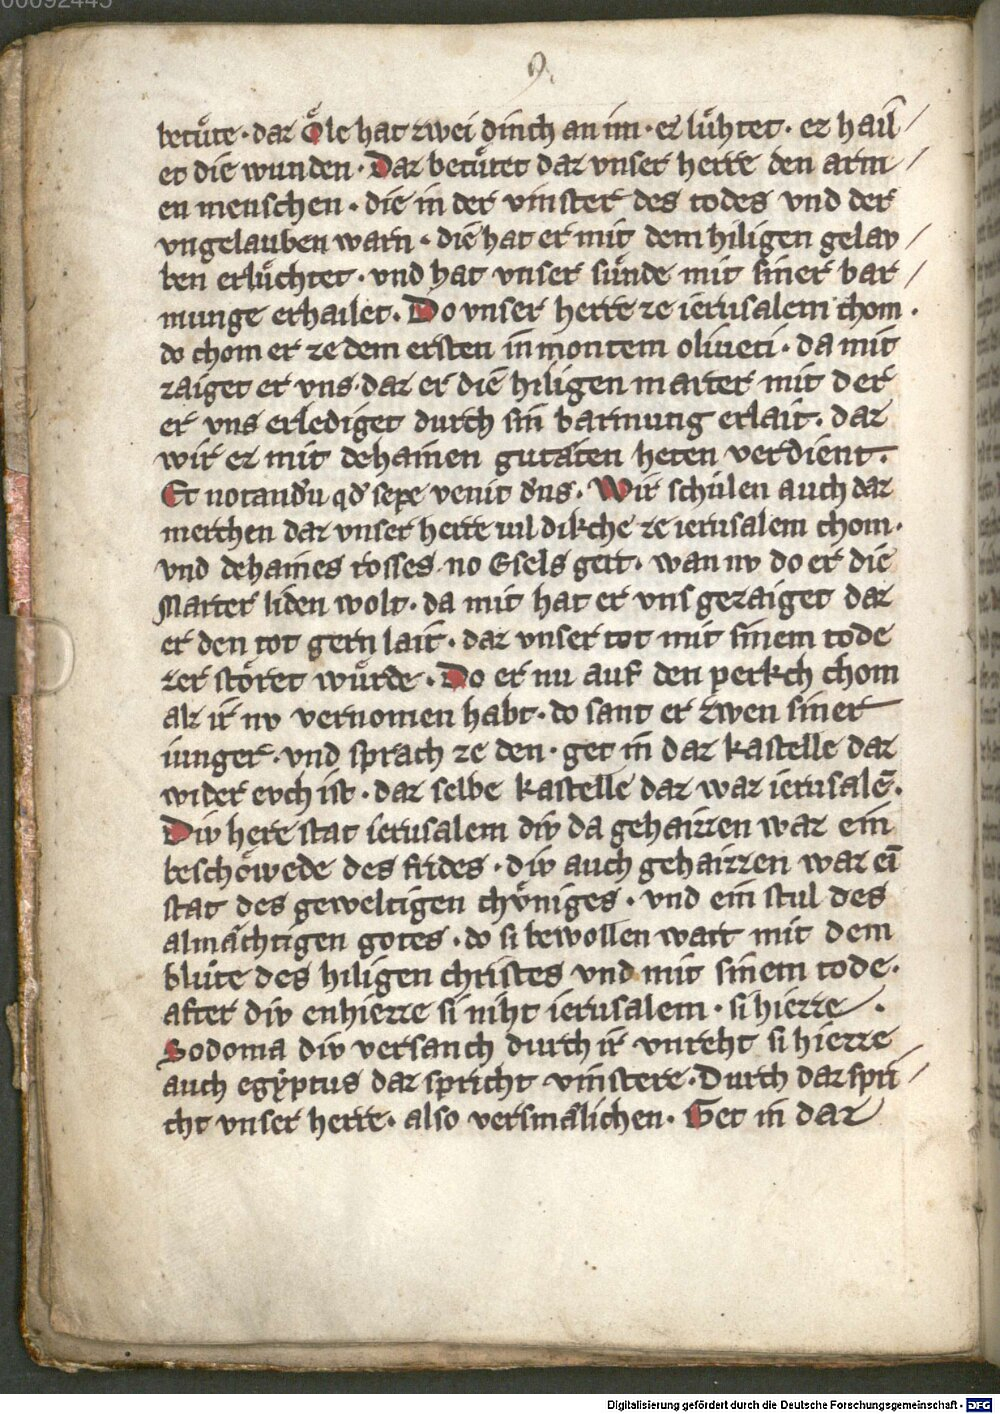 00092445
9.
betu̍te · daz O̍le hat zwei dinch an im · ez lu̍htet · ez hail /
et die wunden · Daz betu̍tet daz vnser herre den arm /
en menschen · die in der vinster des todes vnd der
vngelauben warn · die hat er mit dem hiligen gelav /
ben erlu̍chtet · vnd hat vnser su̍nde mit siner bar /
munge erhailet · Do vnser herre ze ierusalem chom ·
do chom er ze dem ersten in montem oliueti · da mit
zaiget er vns · daz er die hiligen marter mit der
er vns erlediget durch sin barmung erlait · daz
wir ez mit dehainen gutaͤten heten verdient ·
Et notandū qđ sepe venit dn̄s · Wir schulen auch daz
merchen daz vnser herre vil dikche ze ierusalem chom ·
vnd dehaines rosses no Esels gert · wan nv do er die
Marter liden wolt · da mit hat er vns gezaiget daz
er den tot gern lait · daz vnser tot mit sinem tode
zer sto̍ret wu̍rde · Do er nu auf den perkch chom
alz ir nv vernomen habt · do sant er zwen siner
iunger · vnd sprach ze den · get in daz kastelle daz
wider evch ist · daz selbe kastelle daz waz ierusalē ·
Div here stat ierusalem div da gehaizzen waz ein
bescho̍wede des frides · div auch gehaizzen waz eī
stat des geweltigen chv̍niges · vnd ein stul des
almaͤchtigen gotes · do si bewollen wart mit dem
blu̍te des hiligen christes vnd mit sinem tode ·
after div enhiezze si niht ierusalem · si hiezze ·
Sodoma div versanch durch ir vnreht si hiezze
auch egyptus daz spricht vinstere · Durch daz spri /
cht vnser herre · also versmalichen · Get in daz
Digitalisierung gefördert durch die Deutsche Forschungsgemeinschaft - DFG